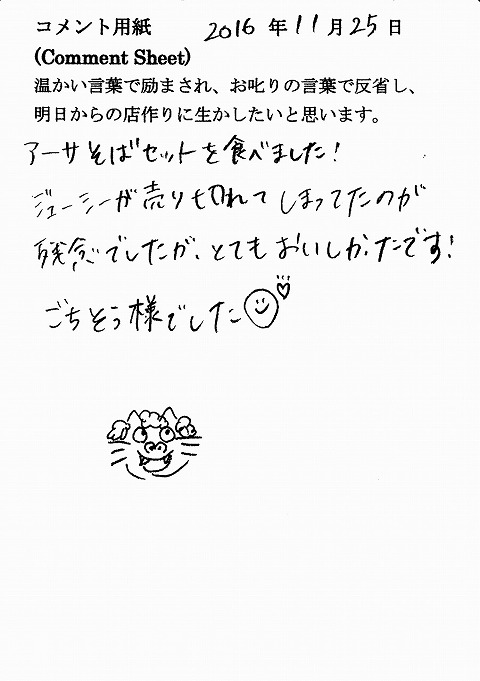 コメント用紙 2016 年 11 月 25 日
(Comment Sheet)
温かい言葉で励まされ、お叱りの言葉で反省し、
明日からの店作りに生かしたいと思います。
アーサそばセットを食べました!
ジューシーが売り切れてしまってたのが
残念でしたが、とてもおいしかったです!
ごちそう様でした